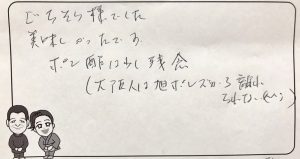 ごちそう様でした
美味しかったです
ポン酢は少し残念
(大阪人は旭ポンズから離れ
られない(^^;)